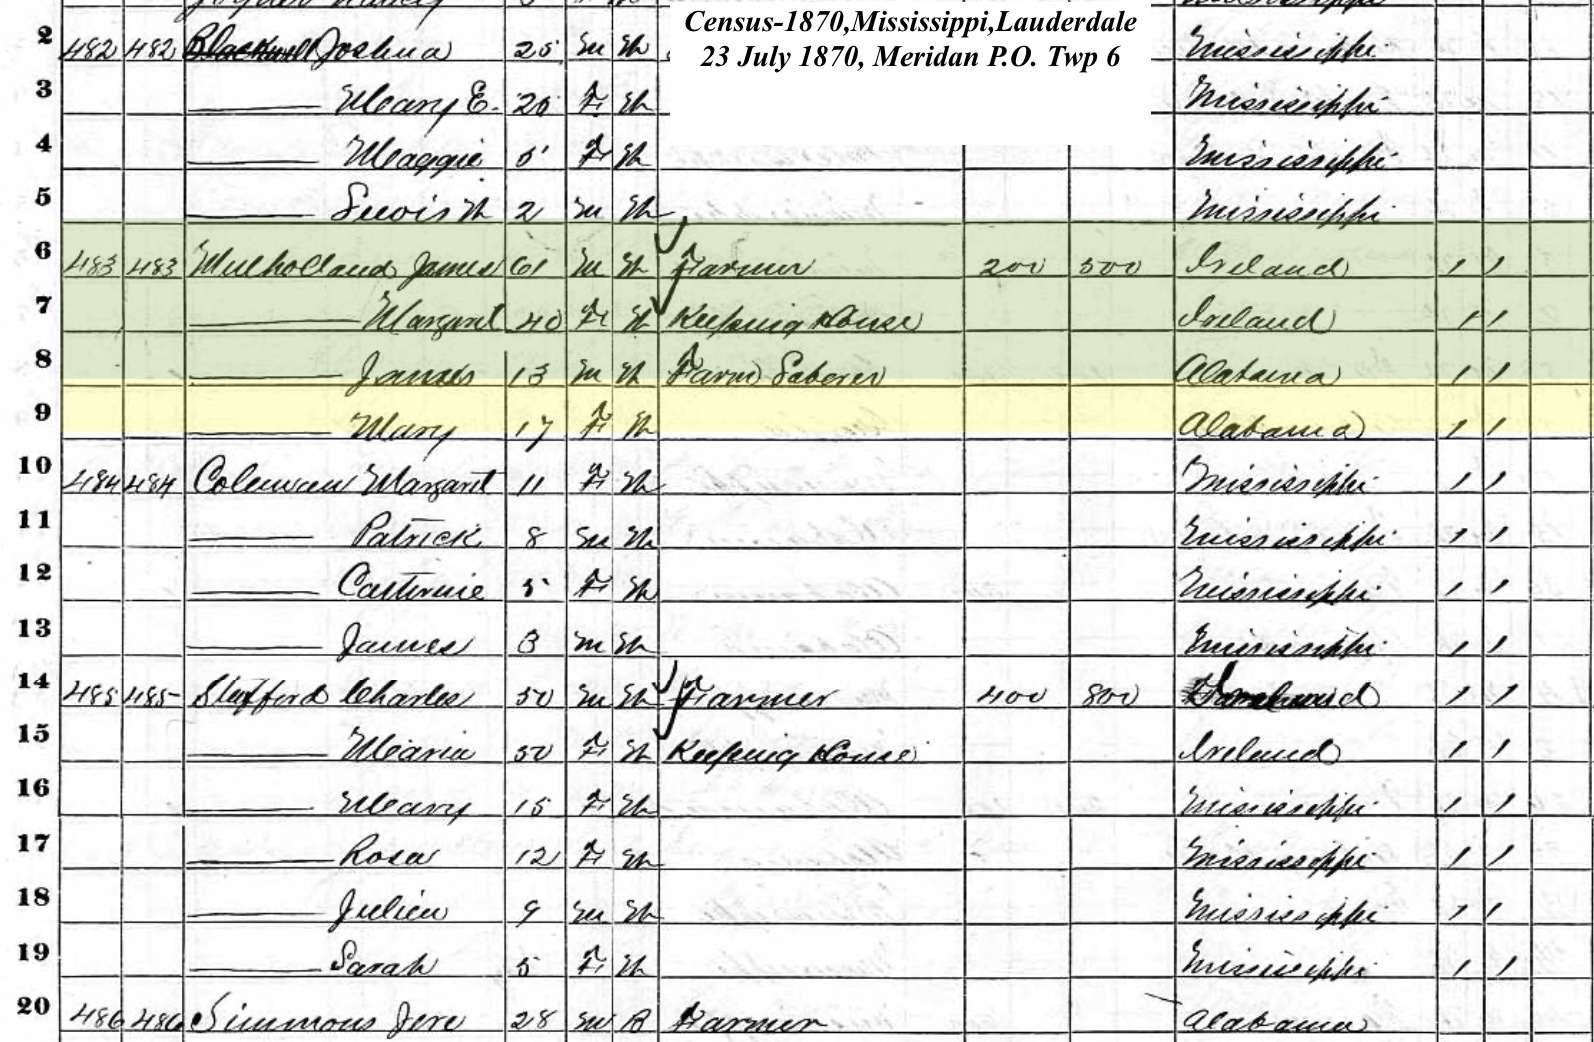 Census-1870,Mississippi,Lauderdale
23 July 1870, Meridan P.O. Twp 6
2 482 482 Blackwell Joshua 25 M W Mississippi
3 —— Mary E. 25 F W Mississippi
4 —— Maggie 5 F W Mississippi
5 —— Lewis W 2 M W Mississippi
6 483 483 Mulholland James 61 M W Farmer 200 500 Ireland 1 1
7 —— Margaret 40 F W Keeping House Ireland 1 1
8 —— James 13 M W Farm Laborer Alabama 1 1
9 —— Mary 17 F W Alabama 1 1
10 484 484 Coleman Margaret 11 F W Mississippi 1 1
11 —— Patrick 8 M W Mississippi 1 1
12 —— Catherine 5 F W Mississippi 1 1
13 —— James 3 M W Mississippi 1 1
14 485 485 Stafford Charles 50 M W Farmer 400 800 1 1
15 —— Maria 50 F W Keeping House Ireland 1 1
16 —— Mary 15 F W Mississippi 1 1
17 —— Rosa 12 F W Mississippi 1 1
18 —— Julien 9 M W Mississippi 1 1
19 —— Sarah 5 F W Mississippi 1 1
20 486 486 Simmons Jere 28 M B Farmer Alabama